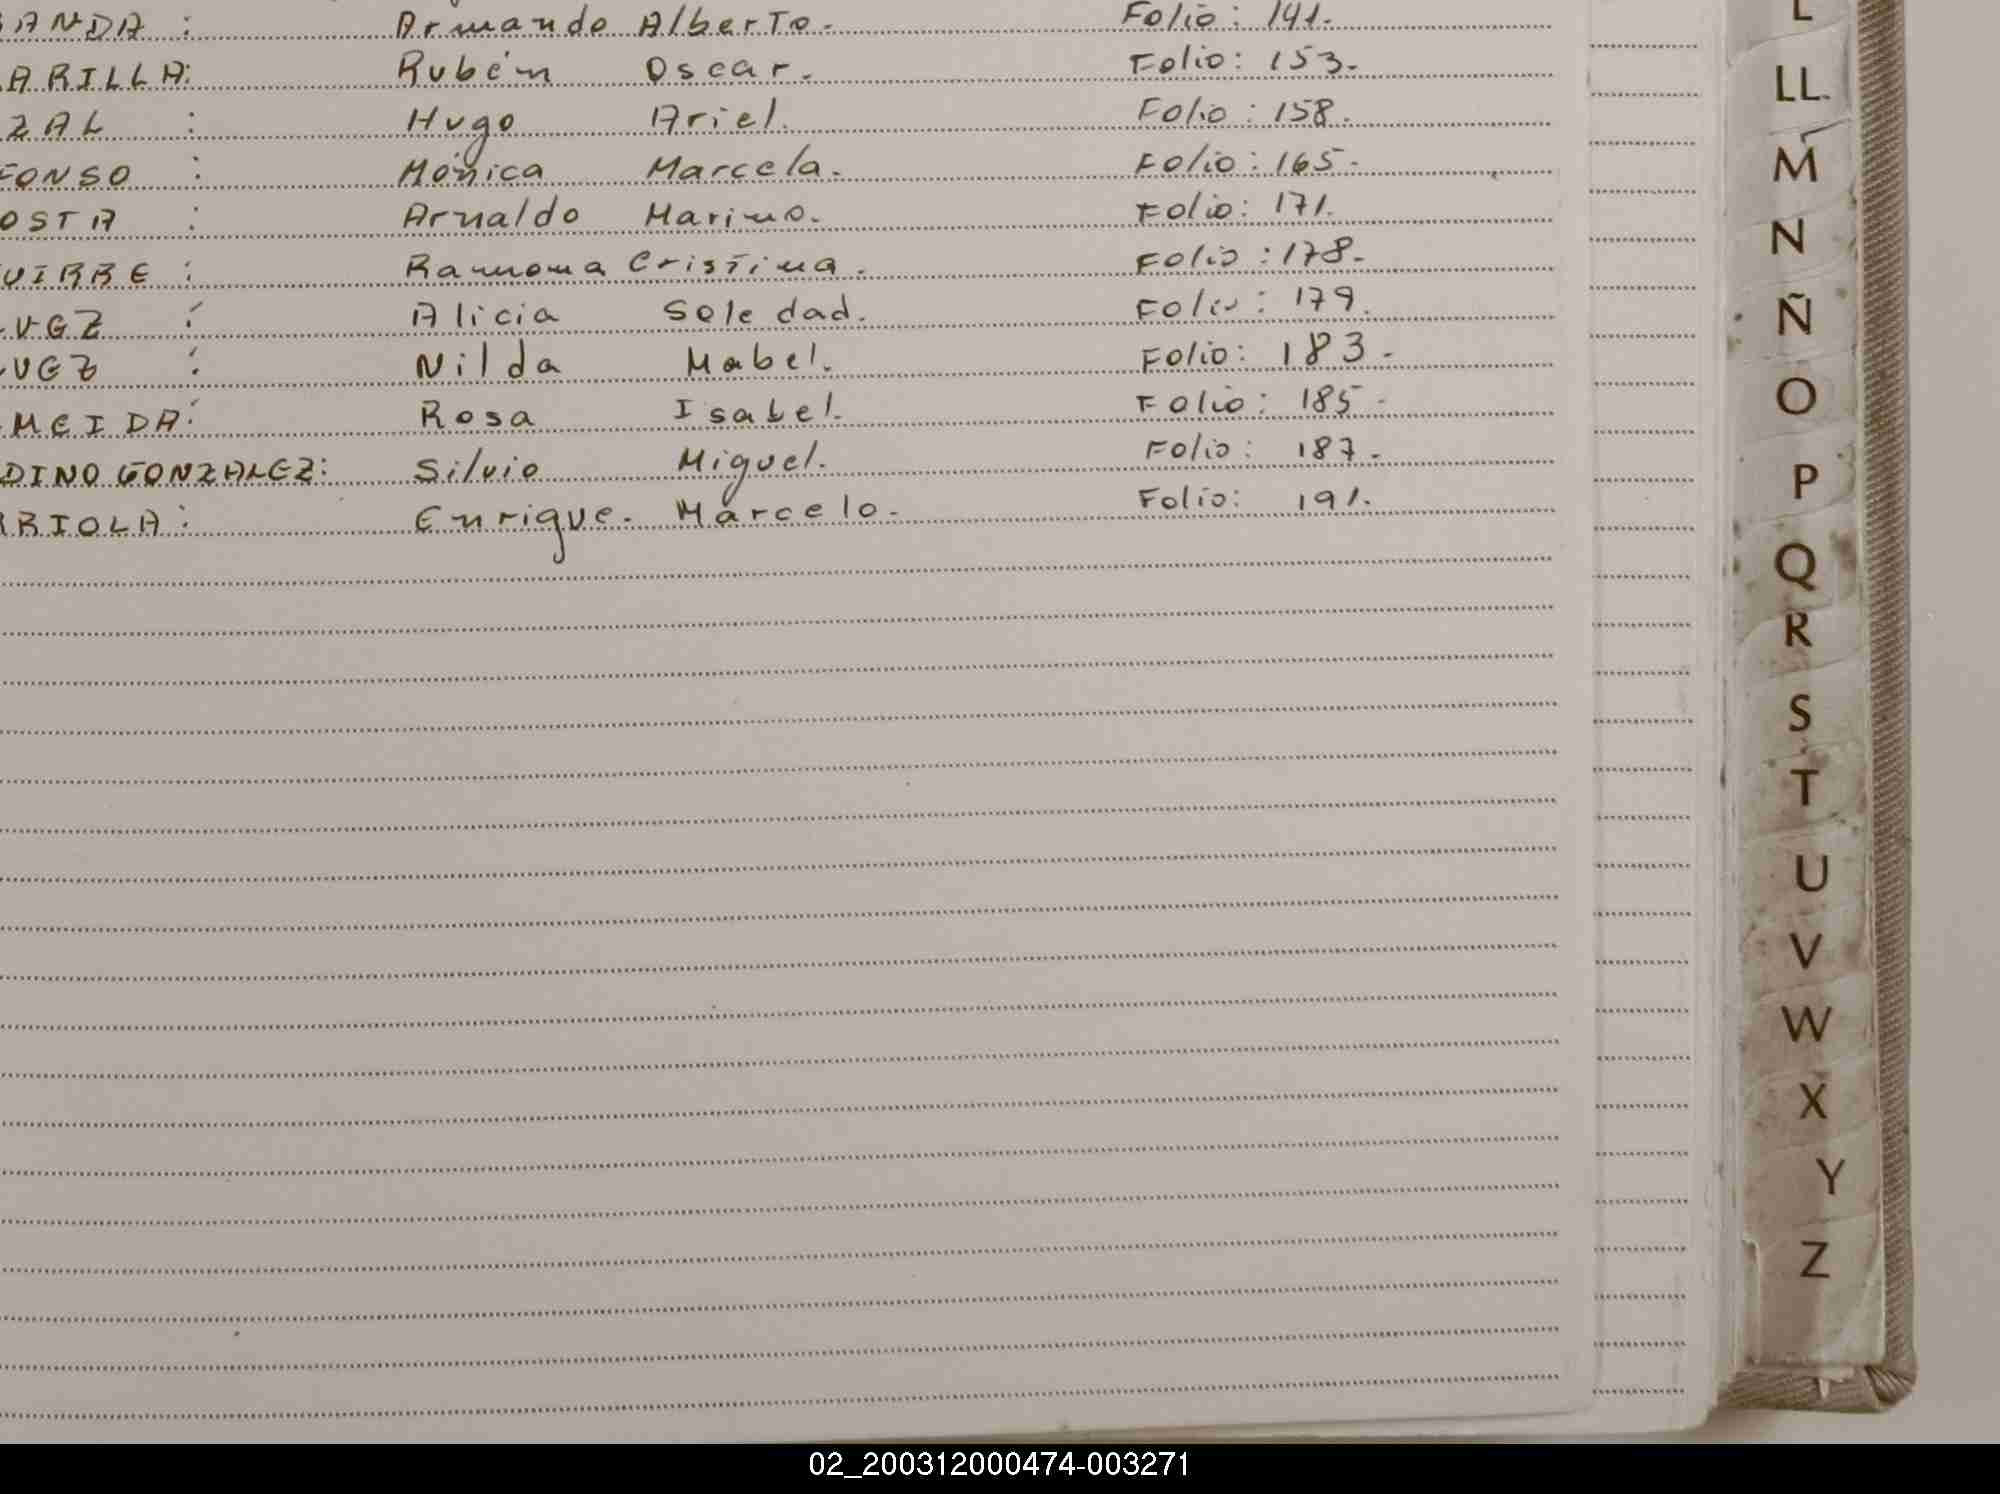 ANDA : Armando Alberto. Folio: 141.
ARILLA: Rubén Oscar. Folio: 153.
ZAL : Hugo Ariel. Folio: 158.
FONSO : Mónica Marcela. Folio: 165.
OSTA : Arnaldo Marino. Folio: 171.
UIRRE : Ramona Cristina. Folio: 178.
VEZ : Alicia Soledad. Folio: 179.
VEZ : Nilda Mabel. Folio: 183.
MEIDA: Rosa Isabel. Folio: 185
DINO GONZALEZ: Silvio Miguel. Folio: 187.
RRIOLA: Enrique. Marcelo. Folio: 191.
L
LL
M
N
Ñ
O
P
Q
R
S
T
U
V
W
X
Y
Z
02_200312000474-003271